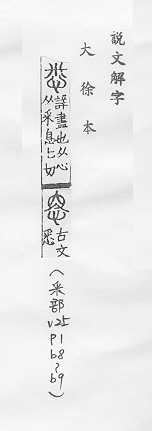 說文解字
大徐本
悉
詳盡也从心
从釆息七切
古文
悉
（釆部 V25 P1 b8~b9）